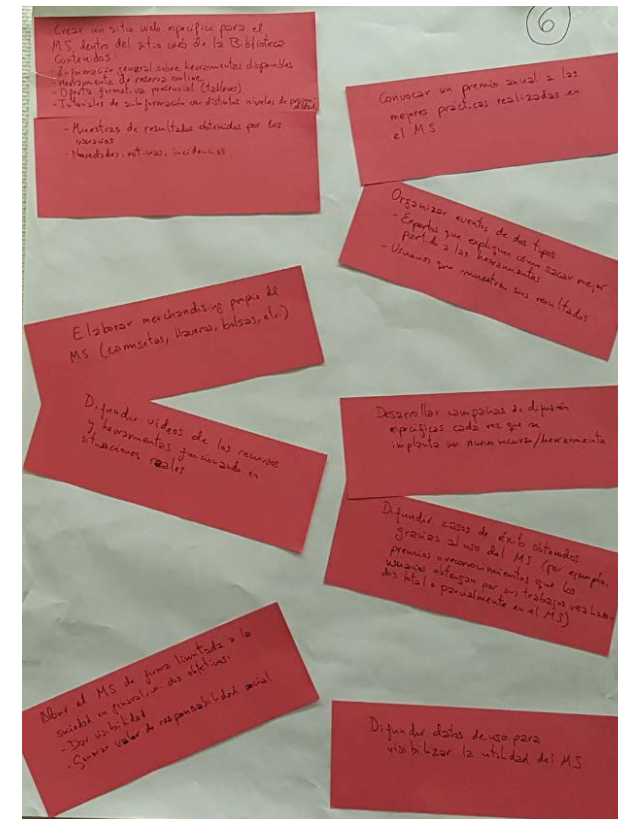 6
Crear un sitio web específico para el
MS dentro del sitio web de la Biblioteca
Contenidos:
- Información general sobre herramientas disponibles
- Herramienta de reserva online
- Oferta formativa presencial (talleres)
- Tutoriales de autoformación con distintos niveles de
- Muestras de resultados obtenidos por los
usuarios
- Novedades, noticias, incidencias
Convocar un premio anual a las
mejores prácticas realizadas en
el MS
Organizar eventos de dos tipos
- Expertos que expliquen cómo sacar mejor
partido a las herramientas
- Usuarios que muestren sus resultados
Elaborar merchandising propio del
MS (camisetas, llaveros, bolsas, etc.)
Difundir vídeos de los recursos
y herramientas funcionando en
situaciones reales
Desarrollar campañas de difusión
específicas cada vez que se
implanta un nuevo recurso/herramienta
Difundir casos de éxito obtenidos
gracias al uso del MS (por ejemplo,
premios o reconocimientos que los
usuarios obtengan por sus trabajos realiza-
dos total o parcialmente en el MS)
Abrir el MS de forma limitada a la
sociedad en general, con dos objetivos:
- Dar visibilidad
- Generar valor de responsabilidad social
Difundir datos de uso para
visibilizar la utilidad del MS